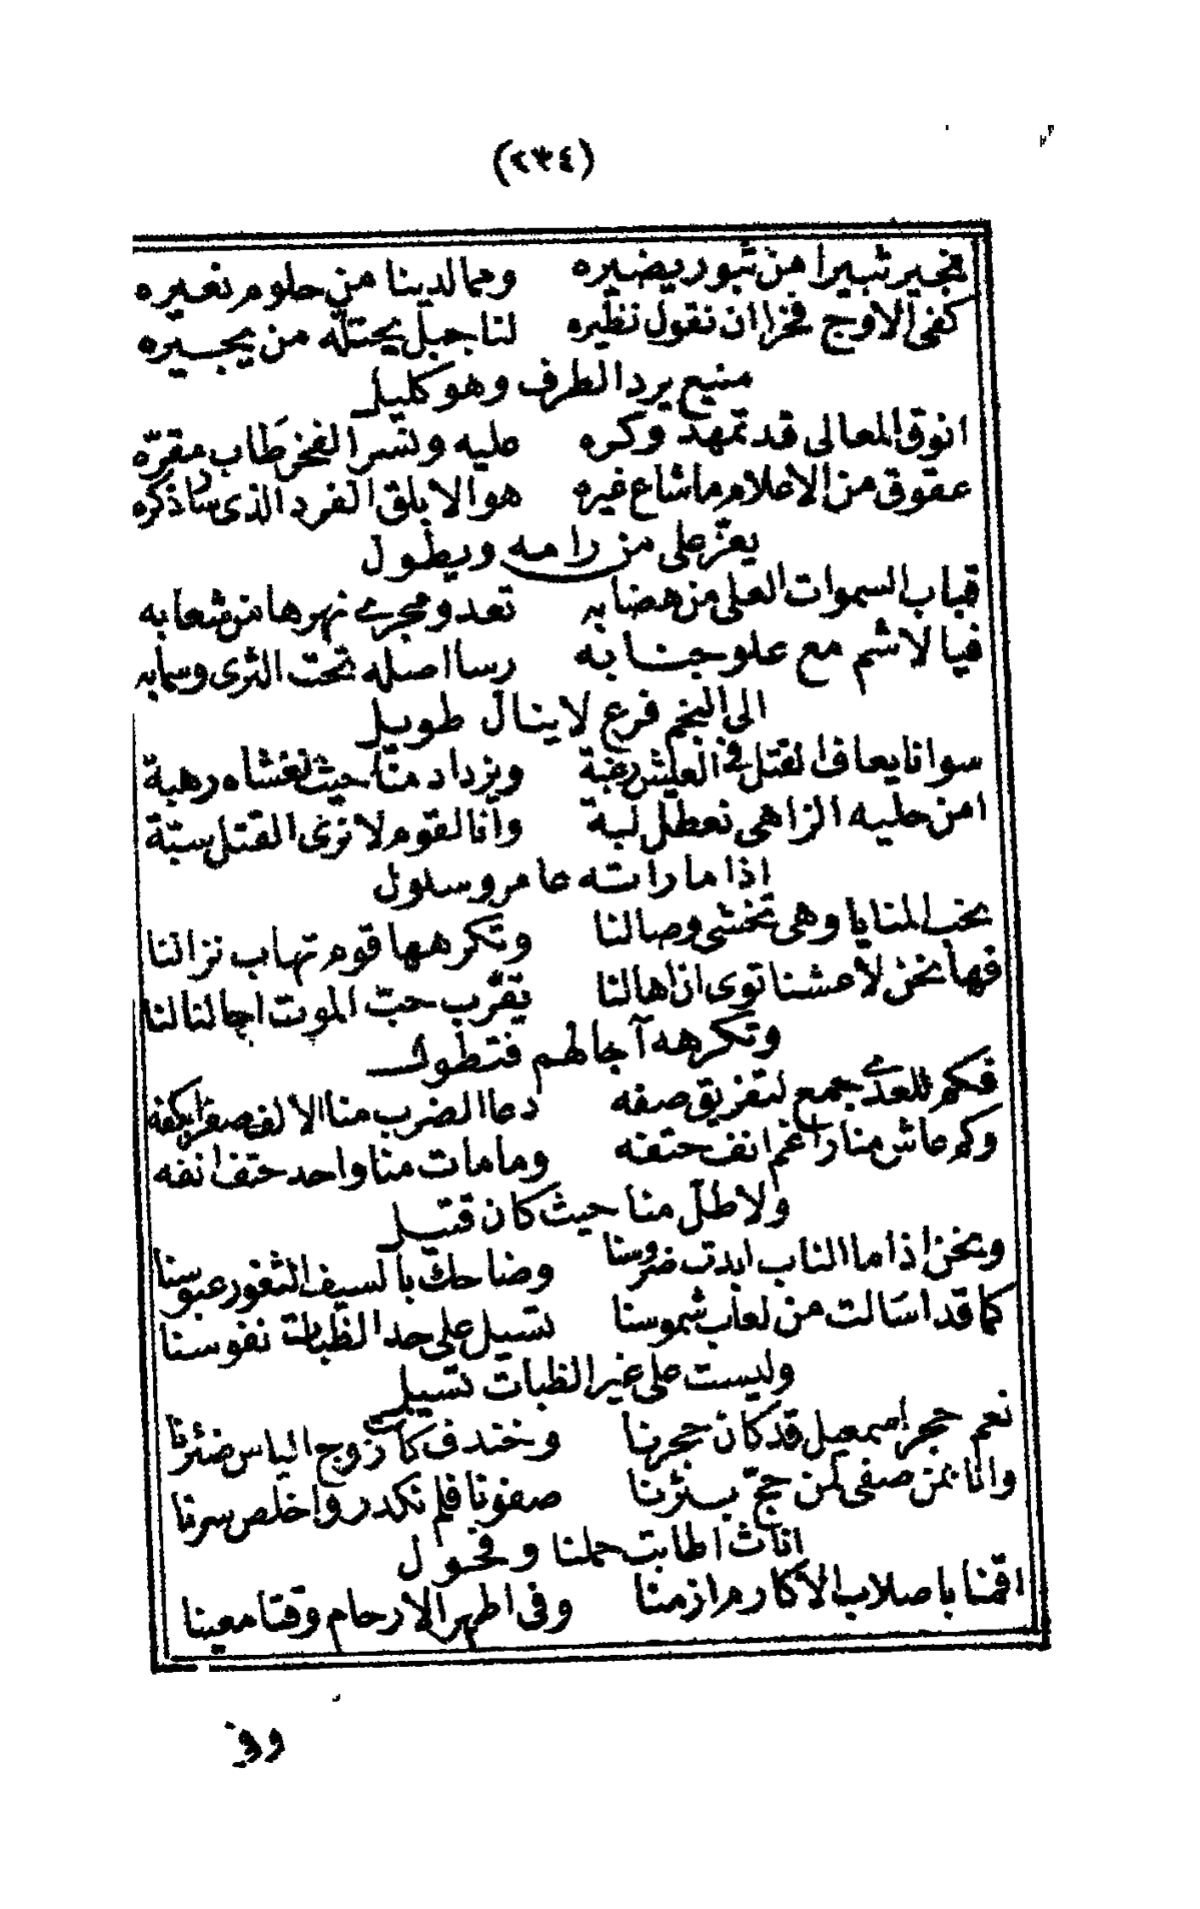 (٢٣٤)
نجير ثبيرا من ثبور يضيره ومما لدينا من حلوم نعيره
كفى الاوج فخرا ان نقول نظيره لنا جبل يحتله من يجيره
منيع يرد الطرف وهو كليل
انوق المعالى قد تمهد وكره عليه ونسر الفخر طاب مقرّه
عقوق من الاعلام ما شاع غيره هو الابلق الفرد الذى سار ذكره
يعزّ على من رامه ويطول
قباب السموات العلى من هضابه تعد ومجرى نهرها من شعابه
فيا لاشم مع علو جنابه رسا اصله تحت الثرى وسما به
الى النجم فرع لا ينال طويل
سوانا يعاف القتل فى العيش رغبة ويزداد منا حيث تغشاه رهبة
امن حليه الزاهى نعطل لبة وانا لقوم لا نرى القتل سبّة
اذا ما راته عامر وسلول
نحب المنايا وهى تخشى وصالنا وتكرهها قوم تهاب نزالنا
فها نحن لا عشنا توى ان اهالنا يقرّب حبّ الموت اجالنا لنا
وتكرهه آجالهم فتطول
فكم للعدى جمع لتفريق صفه دعا الضرب منا الالف صفرا بكفه
وكم عاش منا راغم انف حتفه وما مات منا واحد حتف انفه
ولا طلّ منا حيث كان قتيل
ونحن اذا ما الناب ابدت ضروسنا وضاحك بالسيف الثغور عبوسنا
كما قد اسالت من لعاب شموسنا تسيل على حد الظبات نفوسنا
وليست على غير الظبات تسيل
نعم حجر اسمعيل قد كان حجرنا وخندف كانت زوج الياس ضئرنا
وانا بمن صفى لمن حجّ بئرنا صفونا فلم نكدر واخلص سرنا
اناث اطابت حملنا وفحول
اقمنا باصلاب الاكارم ازمنا وفى اطهر الارحام وقتا معينا
وقر